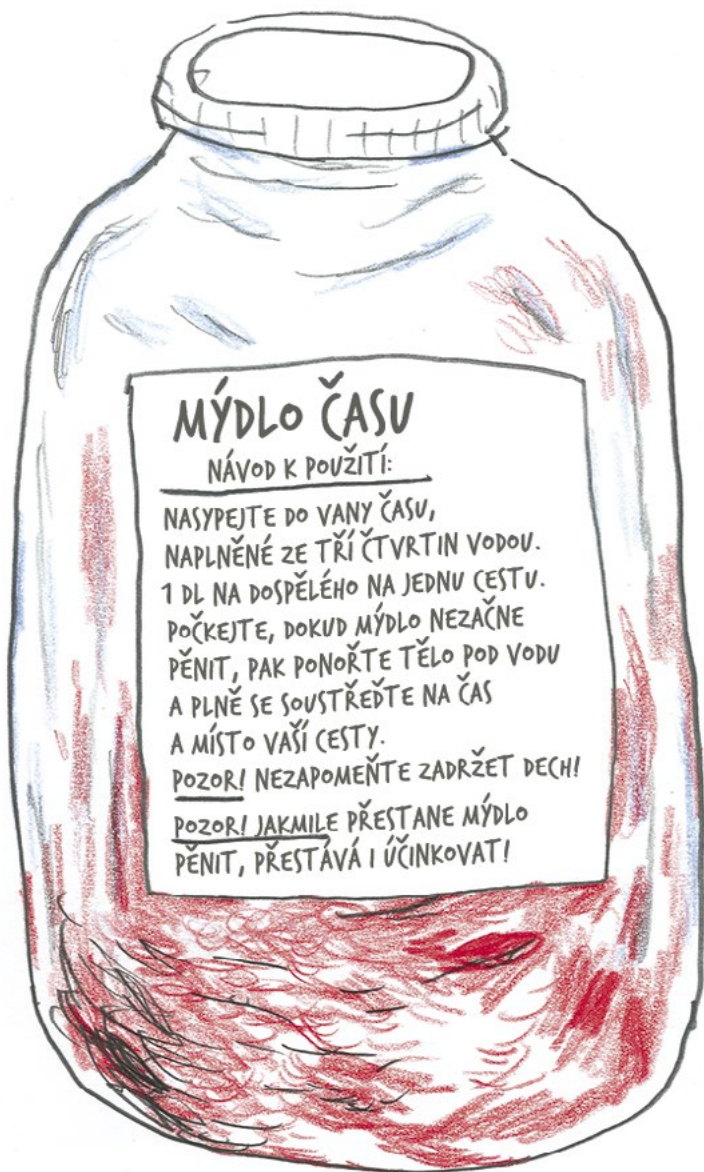 MÝDLO ČASU
NÁVOD K POUŽITÍ:
NASYPEJTE DO VANY ČASU,
NAPLNĚNÉ ZE TŘÍ ČTVRTIN VODOU.
1 DL NA DOSPĚLÉHO NA JEDNU CESTU.
POČKEJTE, DOKUD MÝDLO NEZAČNE
PĚNIT, PAK PONOŘTE TĚLO POD VODU
A PLNĚ SE SOUSTŘEĎTE NA ČAS
A MÍSTO VAŠÍ CESTY.
POZOR! NEZAPOMEŇTE ZADRŽET DECH!
POZOR! JAKMILE PŘESTANE MÝDLO
PĚNIT, PŘESTÁVÁ I ÚČINKOVAT!